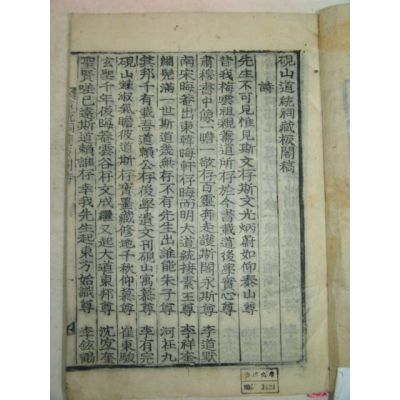 硯山道統祠藏板閣稿
詩
先生不可見惟見斯文存斯文光炳蔚如仰泰山尊
昔我梅雲祖親奮道所存於今書載道後學實心尊
李道默
肅穆書中像瞻一敬存百靈奔走護斯閣永斯尊
南宋晦菴出東韓晦軒存晦尚明大道統接素王尊
李祥奎
緇髡滿一世斯道幾無存不有先生出誰能朱子尊
河在九
箕邦千有載吾道賴公存後學遺文刊硯山寓慕尊
李有完
硯山鍾淑氣瞻彼道斯存寶墨藏修地千秋仰慕尊
崔東駿
玄聖千年後晦菴雲谷存文成繼又起大道東邦尊
沈宜奎
聖賢嗟已遠斯道賴誰存幸我先生起東方始識尊
李鉉鶴